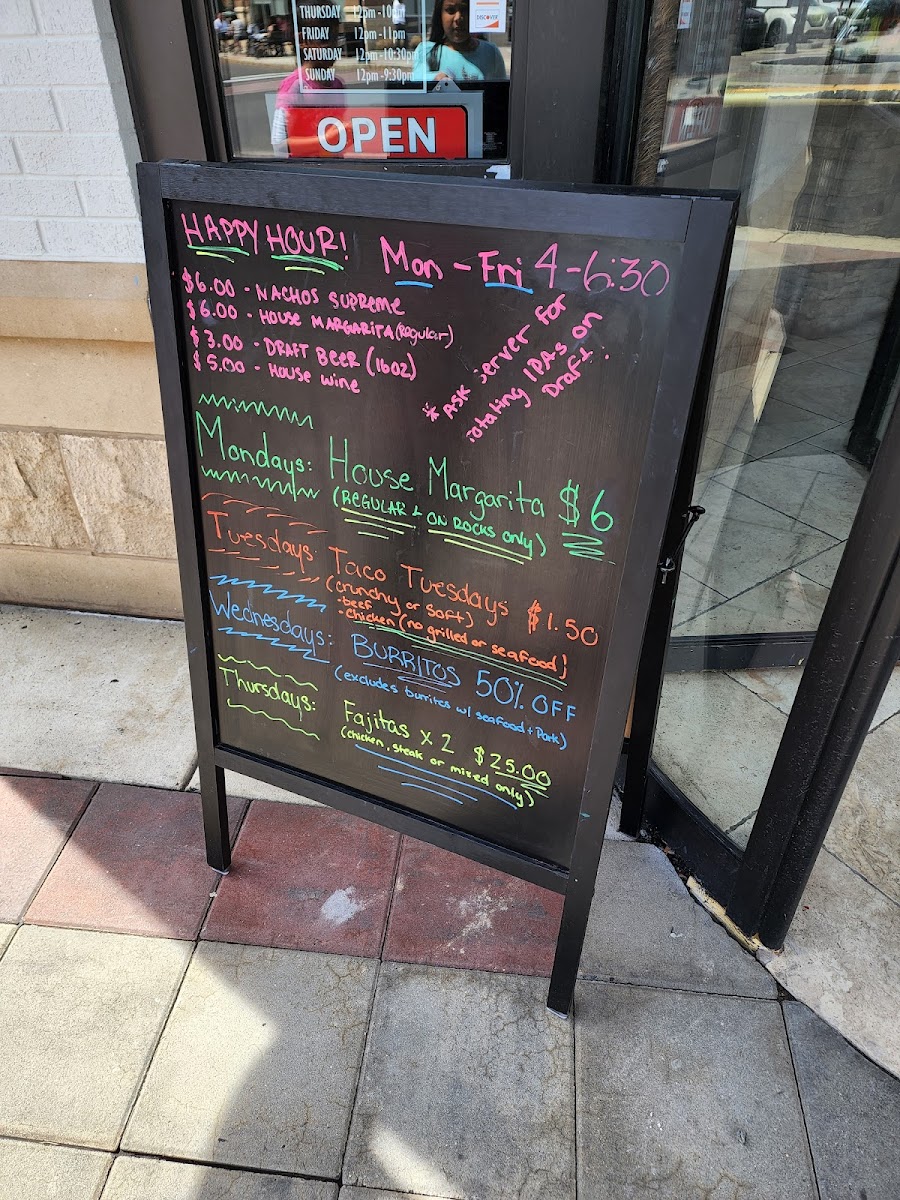 THURSDAY 12pm-10
FRIDAY 12pm-11pm
SATURDAY 12pm-10:30pm
SUNDAY 12pm-9:30pm
DISCOVER
OPEN
HAPPY HOUR! Mon - Fri 4-6:30
$6.00 - NACHOS SUPREME
$6.00 - HOUSE MARGARITA (Regular)
$3.00 - DRAFT BEER (16oz)
$5.00 - HOUSE WINE
* ASK server for
rotating IPAs on
Draft.
Mondays: House Margarita $6
(REGULAR + ON ROCKS only)
Tuesdays: Taco Tuesdays $1.50
(crunchy or soft)
- beef
- chicken (no grilled or seafood)
Wednesdays: BURRITOS 50% OFF
(excludes burritos w/ seafood + Pork)
Thursdays: Fajitas x 2 $25.00
(chicken, steak or mixed only)